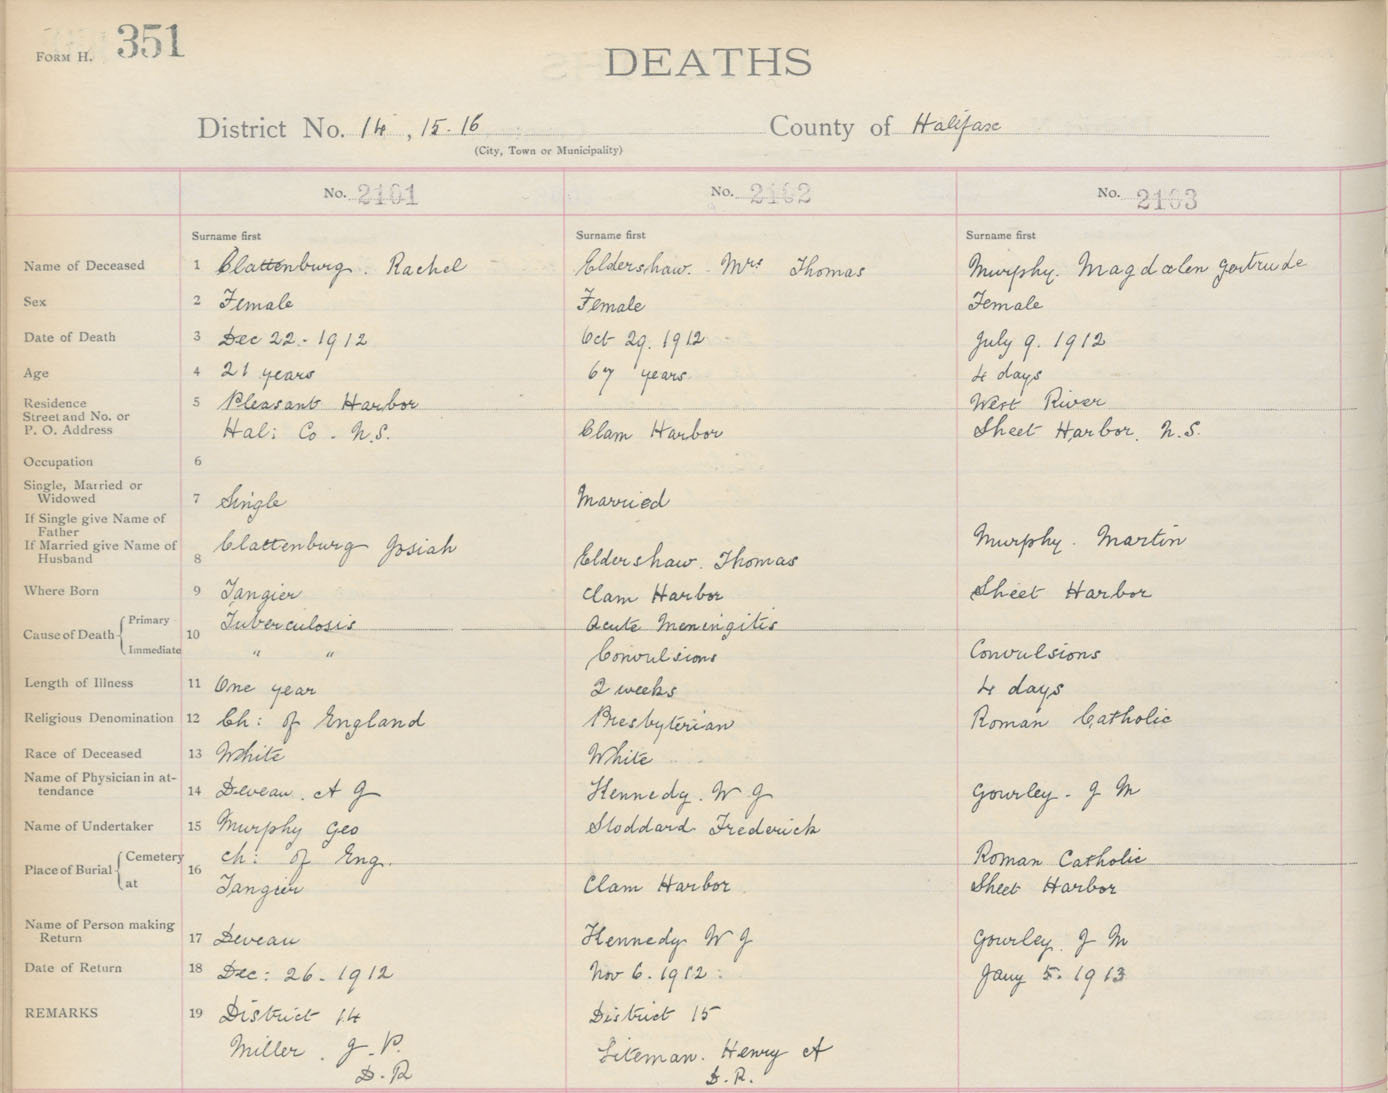 FORM H. 351
DEATHS
District No. 14, 15. 16 County of Halifax
(City, Town or Municipality)
No. 2101 No. 2102 No. 2103
Surname first Surname first Surname first
Name of Deceased 1 Clattenburg. Rachel Eldershaw. Mrs Thomas Murphy. Magdalen Gertrude
Sex 2 Female Female Female
Date of Death 3 Dec 22. 1912 Oct 29. 1912 July 9. 1912
Age 4 21 years 67 years 4 days
Residence 5 Pleasant Harbor West River
Street and No. or
P. O. Address Hal: Co. N.S. Clam Harbor Sheet Harbor. N.S.
Occupation 6
Single, Married or
Widowed 7 Single Married
If Single give Name of
Father
If Married give Name of Clattenburg Josiah Murphy. Martin
Husband 8 Eldershaw. Thomas
Where Born 9 Tangier Clam Harbor Sheet Harbor
Cause of Death Primary 10 Tuberculosis Acute Meningitis
Immediate " " Convulsions Convulsions
Length of Illness 11 One year 2 weeks 4 days
Religious Denomination 12 Ch: of England Presbyterian Roman Catholic
Race of Deceased 13 White White
Name of Physician in at-
tendance 14 Deveau. A J Kennedy. W J Gourley. J M
Name of Undertaker 15 Murphy Geo Stoddard Frederick
Place of Burial Cemetery 16 Ch: of Eng. Roman Catholic
at Tangier Clam Harbor Sheet Harbor
Name of Person making
Return 17 Deveau Kennedy W J Gourley. J M
Date of Return 18 Dec: 26. 1912 Nov 6. 1912 Jany 5. 1913
REMARKS 19 District 14 District 15
Miller. J. P. Siteman. Henry A
D. R. D. R.